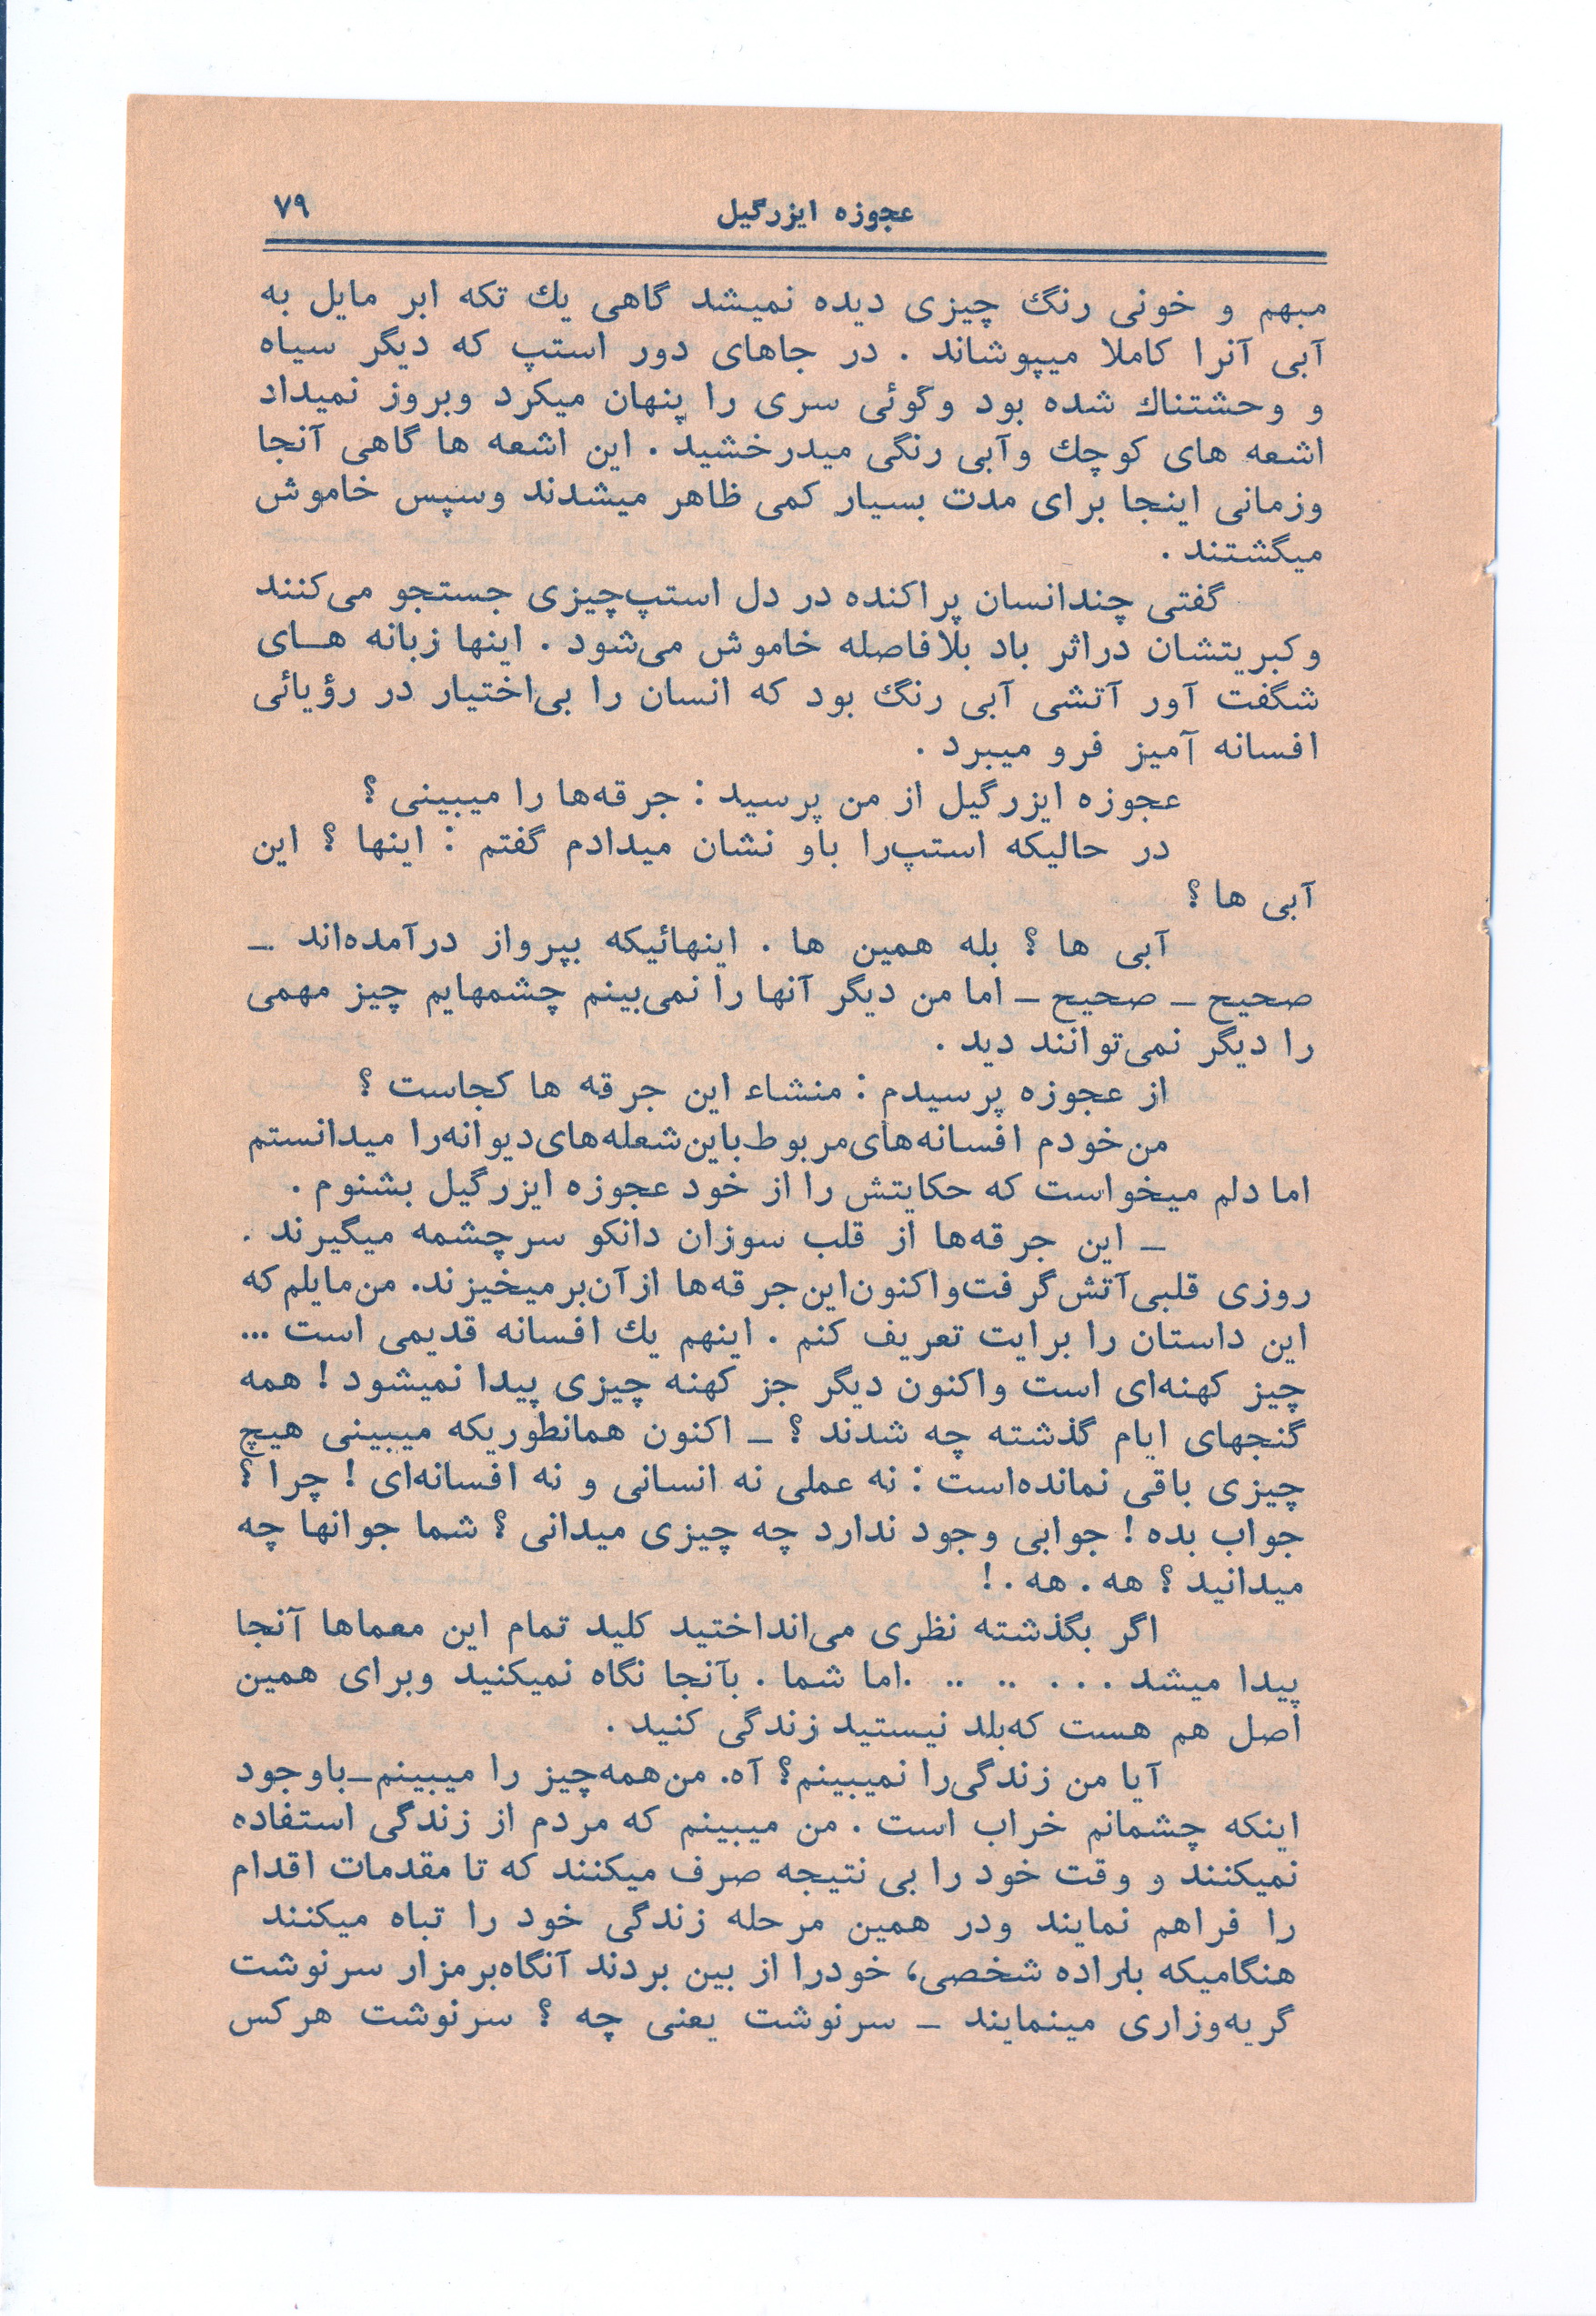 عجوزه ایزرگیل ۷۹
مبهم و خونی رنگ چیزی دیده نمیشد گاهی یك تکه ابر مایل به
آبی آنرا کاملا میپوشاند . در جاهای دور استپ که دیگر سیاه
و وحشتناك شده بود وگوئی سری را پنهان میکرد وبروز نمیداد
اشعه های کوچك وآبی رنگی میدرخشید . این اشعه ها گاهی آنجا
وزمانی اینجا برای مدت بسیار کمی ظاهر میشدند وسپس خاموش
میگشتند .
گفتی چندانسان پراکنده در دل استپ‌چیزی جستجو می‌کنند
وکبریتشان دراثر باد بلافاصله خاموش می‌شود . اینها زبانه هـای
شگفت آور آتشی آبی رنگ بود که انسان را بی‌اختیار در رؤیائی
افسانه آمیز فرو میبرد .
عجوزه ایزرگیل از من پرسید : جرقه‌ها را میبینی ؟
در حالیکه استپ‌را باو نشان میدادم گفتم : اینها ؟ این
آبی ها ؟
آبی ها ؟ بله همین ها . اینهائیکه بپرواز درآمده‌اند ـ
صحیح ـ صحیح ـ اما من دیگر آنها را نمی‌بینم چشمهایم چیز مهمی
را دیگر نمی‌توانند دید .
از عجوزه پرسیدم : منشاء این جرقه ها کجاست ؟
من‌خودم افسانه‌های‌مربوط‌باین‌شعله‌های‌دیوانه‌را میدانستم
اما دلم میخواست که حکایتش را از خود عجوزه ایزرگیل بشنوم .
ـ این جرقه‌ها از قلب سوزان دانکو سرچشمه میگیرند .
روزی قلبی‌آتش‌گرفت‌واکنون‌این‌جرقه‌ها ازآن‌برمیخیزند. من‌مایلم‌که
این داستان را برایت تعریف کنم . اینهم یك افسانه قدیمی است ...
چیز کهنه‌ای است واکنون دیگر جز کهنه چیزی پیدا نمیشود ! همه
گنجهای ایام گذشته چه شدند ؟ ـ اکنون همانطوریکه میبینی هیچ
چیزی باقی نمانده‌است : نه عملی نه انسانی و نه افسانه‌ای ! چرا ؟
جواب بده ! جوابی وجود ندارد چه چیزی میدانی ؟ شما جوانها چه
میدانید ؟ هه . هه . !
اگر بگذشته نظری می‌انداختید کلید تمام این معماها آنجا
پیدا میشد . . . .. .. .اما شما . بآنجا نگاه نمیکنید وبرای همین
اصل هم هست که‌بلد نیستید زندگی کنید .
آیا من زندگی‌را نمیبینم؟ آه. من‌همه‌چیز را میبینم‌ـ‌باوجود
اینکه چشمانم خراب است . من میبینم که مردم از زندگی استفاده
نمیکنند و وقت خود را بی نتیجه صرف میکنند که تا مقدمات اقدام
را فراهم نمایند ودر همین مرحله زندگی خود را تباه میکنند
هنگامیکه باراده شخصی، خودرا از بین بردند آنگاه‌برمزار سرنوشت
گریه‌وزاری مینمایند ـ سرنوشت یعنی چه ؟ سرنوشت هرکس